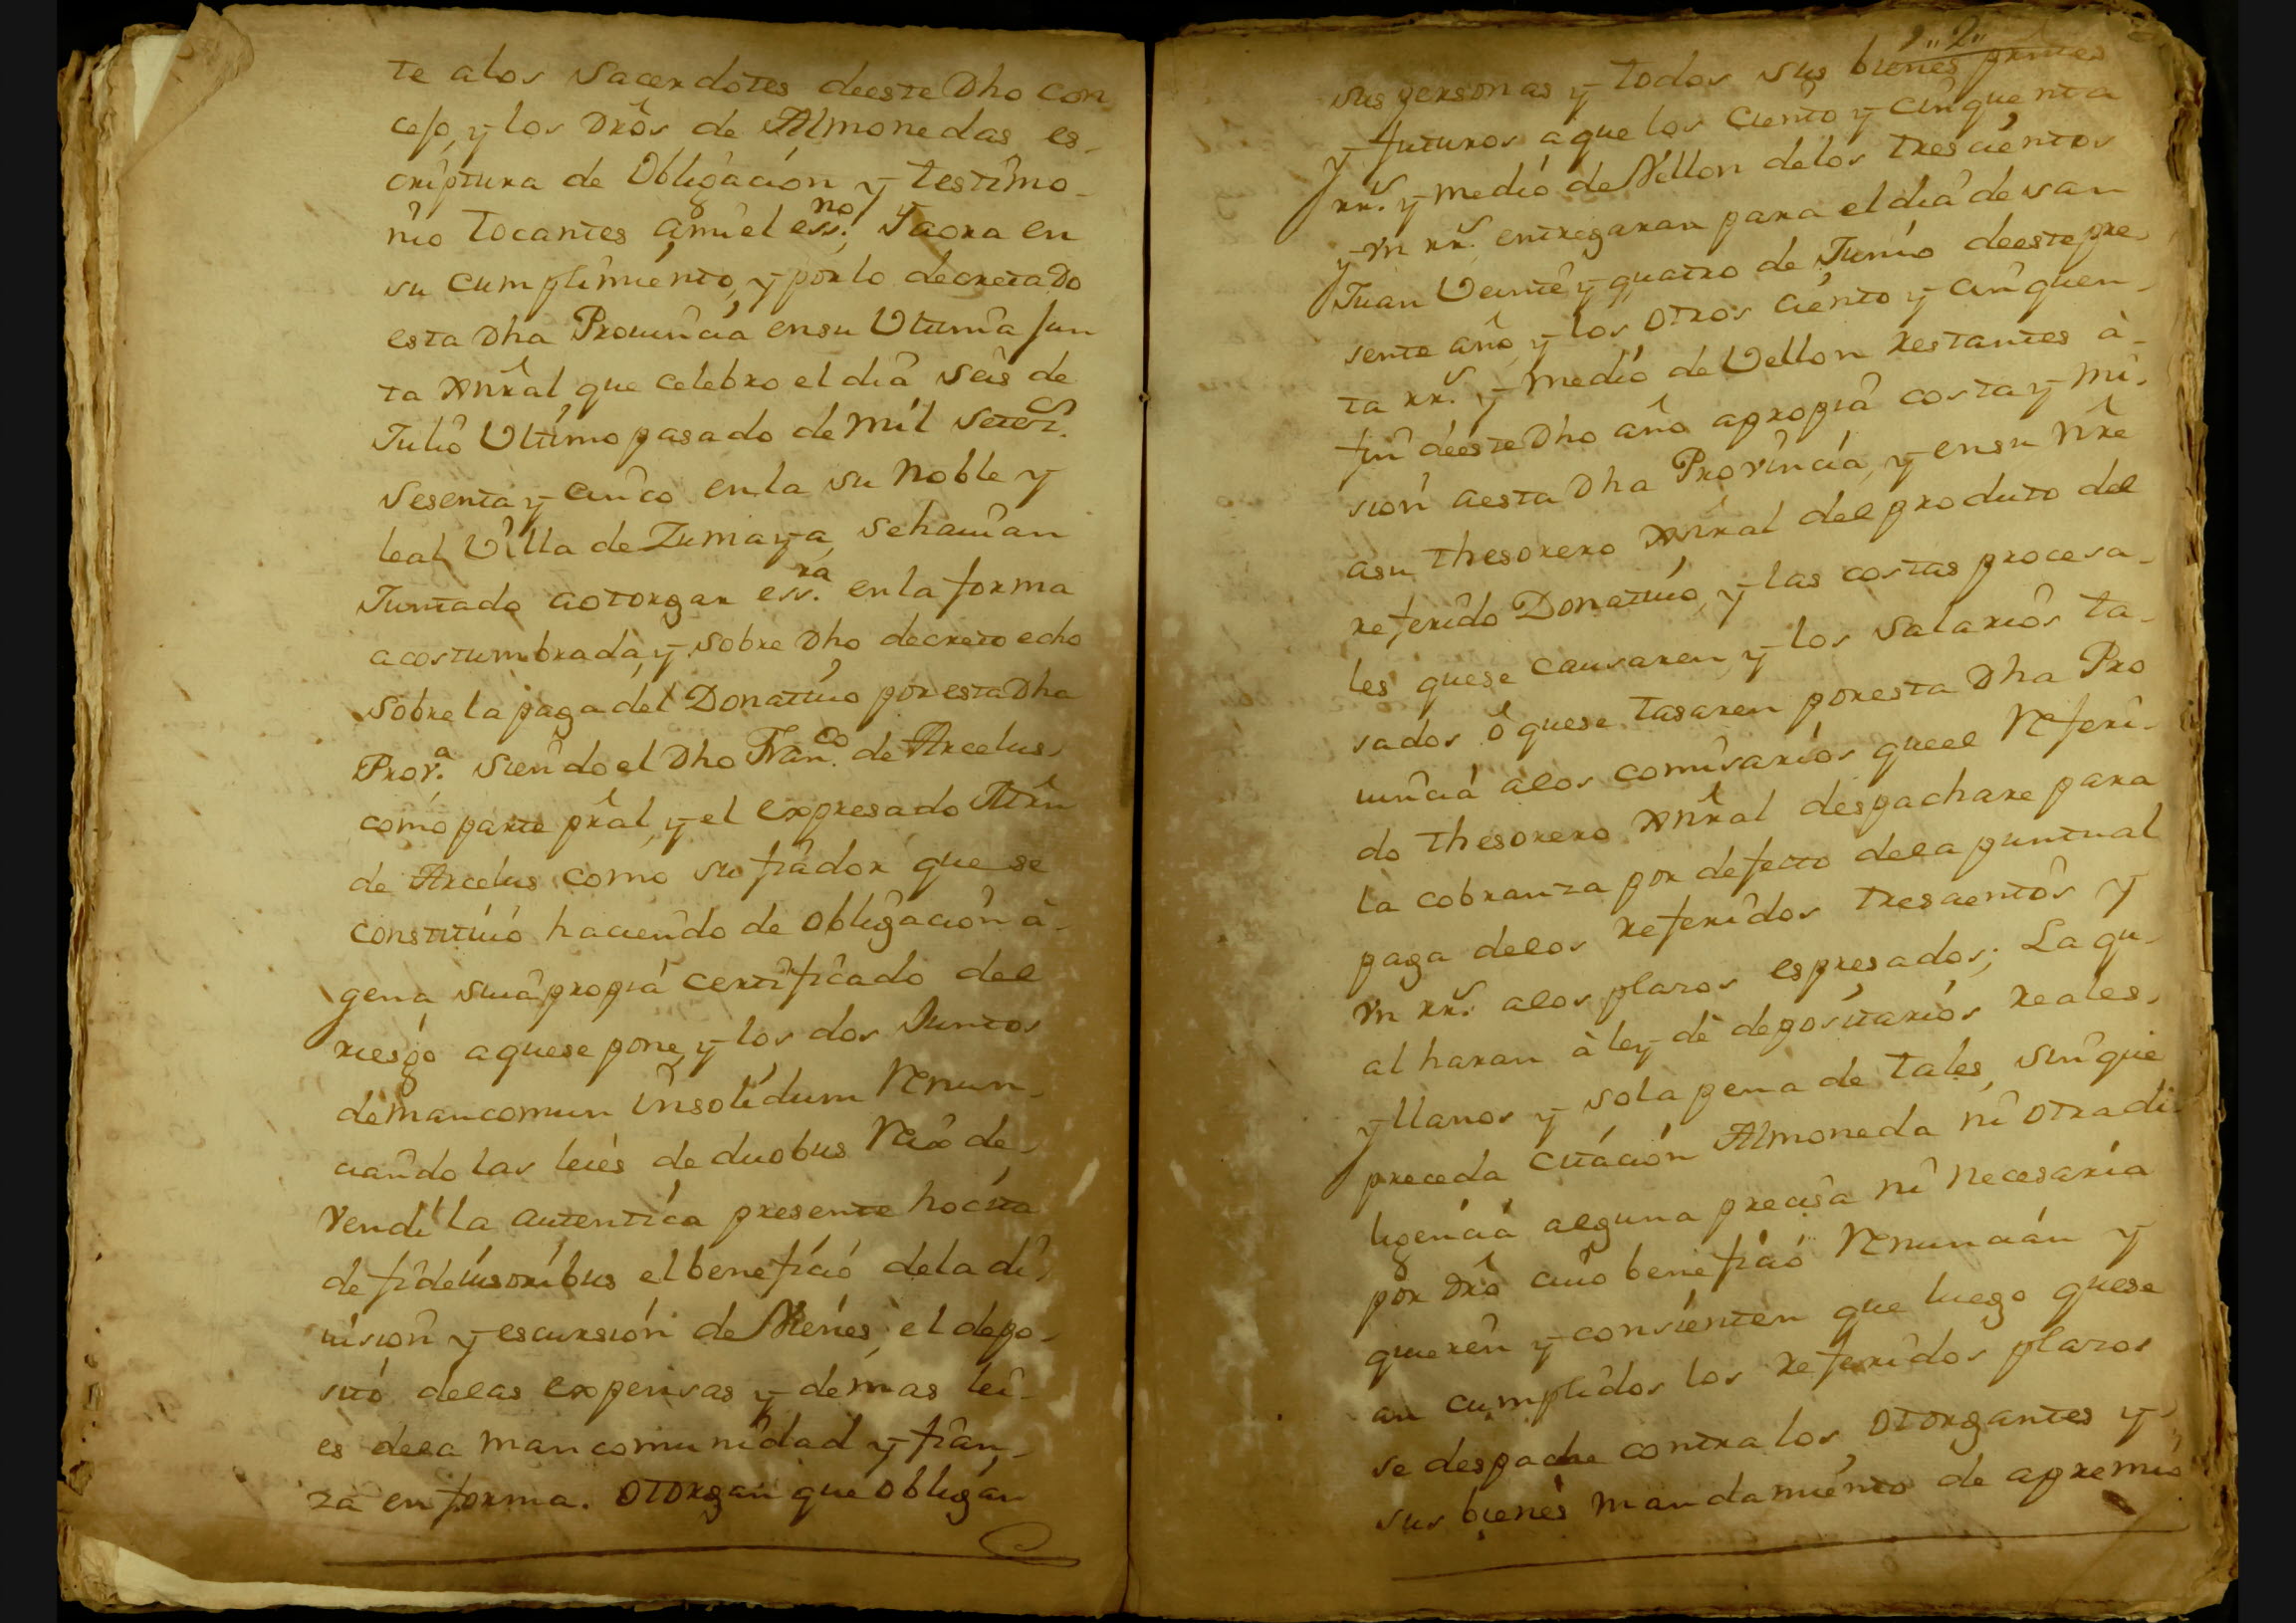 te alos Sacerdotes deeste Dho con
cejo, y los Drôs de Almonedas es-
criptura de Obligación y testimo-
nio tocantes amiel ess.no, Y aora en
su cumplimiento, y porlo decretado
esta Dha Prouincia ensu Vltima Jun
ta Gnral que celebro el dia Seis de
Julio Ultimo pasado de mil Setec.s
Sesenta y cinco enla su Noble y
leal Villa de Zumaya, sehauian
Juntado aotorgar ess.ra en la forma
acostumbrada, y sobre Dho decreto echo
sobre la paga del Donatiuo por esta Dha
Prov.a siendo el Dho Fran.co de Arcelus
como parte prâl, y el expresado
de Arcelus como su fiador que se
constituió haciendo de obligación à-
gena suia propia certificado del
riesgo aquese pone, y los dos Juntos
demancomun insolidum Renun-
ciando las leies de duobus Reix de-
vendi la autentica presente hocita
de fideiusoribus el beneficio dela di-
uision y escursión de Vienes, el depo-
sitó delas expensas y demas lei-
es dela mancomunidad y fian-
za en forma. Otorgan que obligan
1"2"
sus personas y todos sus bienes
y futuros aque los ciento y cinquenta
rr.s y medio de Vellon delos trescientos
y vn rr.s entregaran para el dia de san
Juan Veinte y quatro de Junio deeste pre-
sente año, y los otros ciento y cinquen-
ta rr.s y medio de Vellon restantes à-
fin deeste Dho año apropia costa y mi-
sion aesta Dha Provincia, y ensu Nre
asu thesorero Gnral del produto del
referido Donatiuo, y las costas procesa-
les quese causaren, y los salarios ta-
sados ô quese tasaren poresta Dha Pro
uincia alos comisarios queel Referi-
do thesorero Gnral despachare para
la cobranza por defecto dela puntual
paga delos referidos trescientos y
vn rr.s alos plazos espresados; La qu-
al haran à ley de depositarios reales
y llanos y sola pena de tales, sin que
preceda citación Almoneda ni otra di-
ligencia alguna precisa ni necesaria
por Drô cuio beneficio Renuncian y
quieren y consienten que luego quese
an cumplidos los referidos plazos
se despache contra los otorgantes y
sus bienes mandamiento de apremio